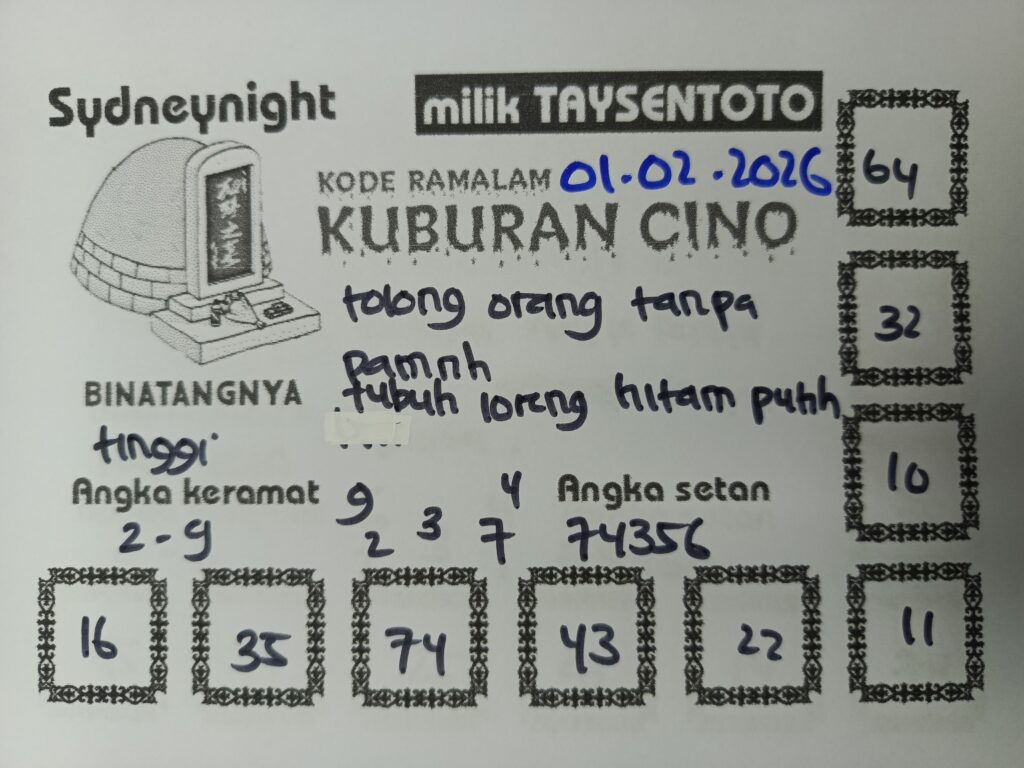 Sydneynight
milik TAYSENTOTO
KODE RAMALAM 01.02.2026
KUBURAN CINO
64
tolong orang tanpa
pamrih
32
BINATANGNYA
tubuh loreng hitam putih
tinggi
10
Angka keramat
9 4
Angka setan
2-9
2 3 7
74356
16 35 74 43 22 11